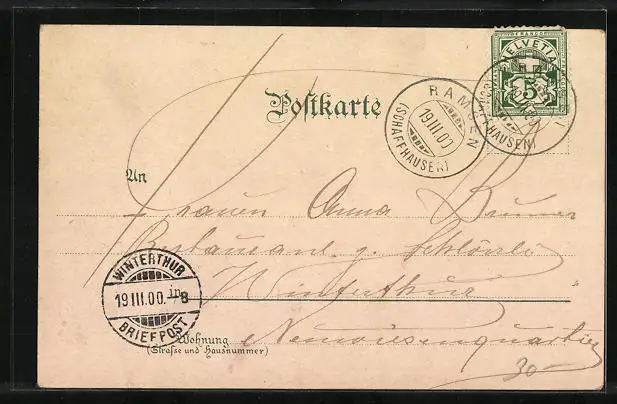 FRANCO
HELVETIA
5
Postkarte
RAMSEN
19.III.00
(SCHAFFHAUSEN)
HAUSEN)
An
Frauen Anna Brunner
Restaurant z. Schlössli
WINTERTHUR
19.III.00.
in
8
BRIEFPOST
Winterthur
Wohnung
(Straße und Hausnummer)
Neuwiesenquartier
30-